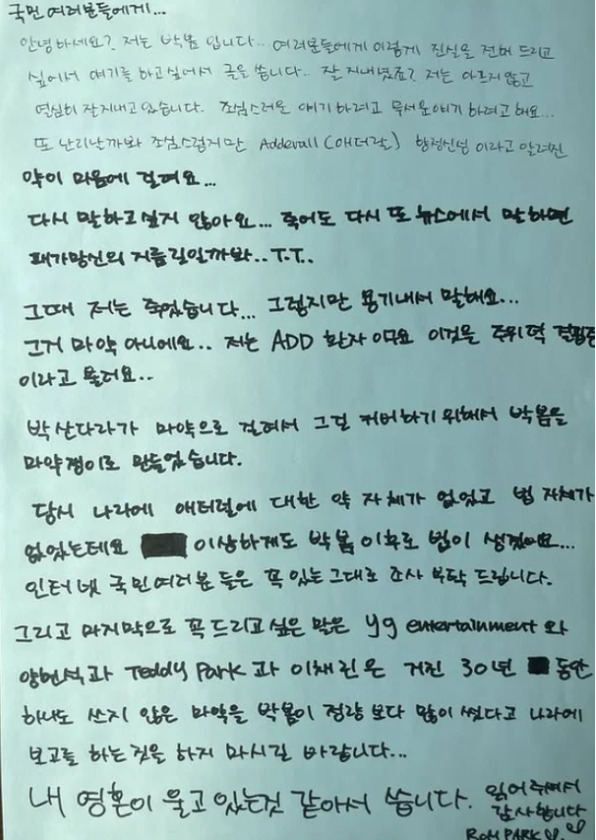 국민 여러분들에게...
안녕하세요? 저는 박봄 입니다.. 여러분들에게 이렇게 진실을 전해 드리고
싶어서 얘기를 하고싶어서 글을 씁니다.. 잘 지내셨죠? 저는 아프지 않고
열심히 잘지내고 있습니다. 조심스러운 얘기 하려고 무서운얘기 하려고 해요...
또 난리날까봐 조심스럽지만 Adderall (애더랄) 향정신성 이라고 알려진
약이 마음에 걸려요...
다시 말하고 싶지 않아요... 죽어도 다시 또 뉴스에서 말하면
패가망신의 지름길일까봐.. T.T..
그때 저는 죽었습니다... 그렇지만 용기내서 말해요...
그거 마약 아니에요.. 저는 ADD 환자 이구요 이것을 주위력 결핍증
이라고 불러요..
박산다라가 마약으로 걸려서 그걸 커버하기 위해서 박봄을
마약쟁이로 만들었습니다.
당시 나라에 애터럴에 대한 약 자체가 없었고 법 자체가
없었는데요 이상하게도 박봄 이후로 법이 생겼어요...
인터넷 국민여러분 들은 꼭 있는 그대로 조사 부탁 드립니다.
그리고 마지막으로 꼭 드리고 싶은 말은 yg entertainment 와
양현석과 Teddy Park 과 이채린 은 거진 30년 동안
하나도 쓰지 않은 마약을 박봄이 정량 보다 많이 썼다고 나라에
보고를 하는것을 하지 마시길 바랍니다...
내 영혼이 울고 있는것 같아서 씁니다. 읽어주셔서
감사합니다
Bom PARK ♡.♡